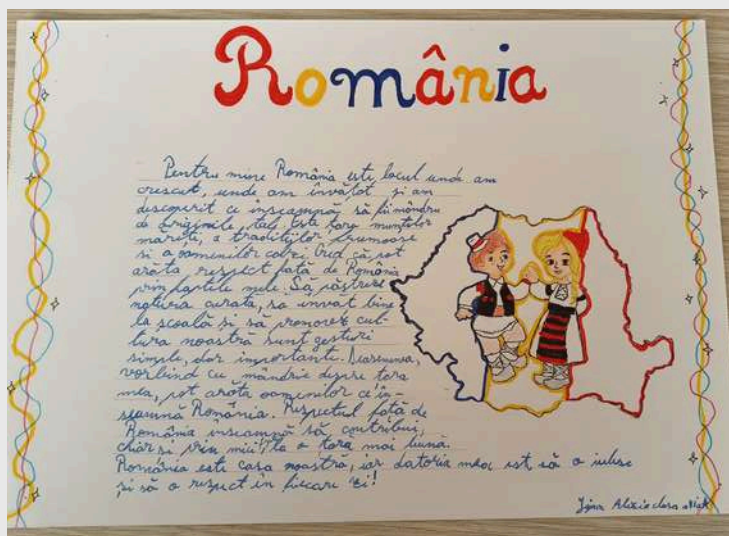 România
Pentru mine România este locul unde am
crescut, unde am învățat și am
descoperit ce înseamnă să fii mândru
de originile tale. Este țara munților
măreți, a tradițiilor frumoase
și a oamenilor calzi. Cred că pot
arăta respect față de România
prin faptele mele. Să păstrez
natura curată, să învăț bine
la școală și să promovez cul-
tura noastră sunt gesturi
simple, dar importante. Deasemenea,
vorbind cu mândrie despre țara
mea, pot arăta oamenilor ce în-
seamnă România. Respectul față de
România înseamnă să contribui,
chiar și prin la o țară mai bună.
România este casa noastră, iar datoria mea este să o iubesc
și să o respect în fiecare zi!
clasa